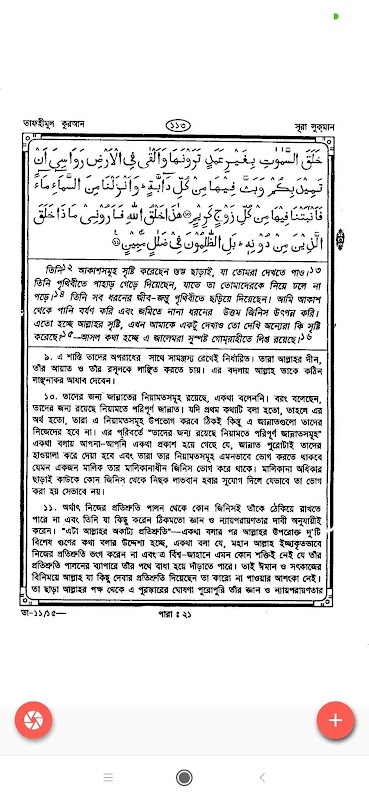 তাফহীমুল কুরআন
১১৩
সূরা লুকমান
خَلَقَ السَّمٰوٰتِ بِغَيْرِ عَمَدٍ تَرَوْنَهَا وَاَلْقٰى فِى الْاَرْضِ رَوَاسِىَ اَنْ
تَمِيْدَ بِكُمْ وَبَثَّ فِيْهَا مِنْ كُلِّ دَآبَّةٍ ؕ وَاَنْزَلْنَا مِنَ السَّمَآءِ مَآءً
فَاَنْۢبَتْنَا فِيْهَا مِنْ كُلِّ زَوْجٍ كَرِيْمٍ ﴿۱۰﴾ هٰذَا خَلْقُ اللّٰهِ فَاَرُوْنِىْ مَاذَا خَلَقَ
الَّذِيْنَ مِنْ دُوْنِهٖ ؕ بَلِ الظّٰلِمُوْنَ فِىْ ضَلٰلٍ مُّبِيْنٍ ﴿۱۱﴾
তিনি১২ আকাশসমূহ সৃষ্টি করেছেন স্তম্ভ ছাড়াই, যা তোমরা দেখতে পাও।১৩
তিনি পৃথিবীতে পাহাড় গেড়ে দিয়েছেন, যাতে তা তোমাদেরকে নিয়ে ঢলে না
পড়ে।১৪ তিনি সব ধরনের জীব-জন্তু পৃথিবীতে ছড়িয়ে দিয়েছেন। আমি আকাশ
থেকে পানি বর্ষণ করি এবং জমিতে নানা ধরনের উত্তম জিনিস উৎপন্ন করি।
এতো হচ্ছে আল্লাহর সৃষ্টি, এখন আমাকে একটু দেখাও তো দেখি অন্যেরা কি সৃষ্টি
করেছে?১৫—আসল কথা হচ্ছে এ জালেমরা সুস্পষ্ট গোমরাহীতে লিপ্ত রয়েছে।১৬
৯. এ শাস্তি তাদের অপরাধের সাথে সামঞ্জস্য রেখেই নির্ধারিত। তারা আল্লাহর দীন,
তাঁর আয়াত ও তাঁর রসূলকে লাঞ্ছিত করতে চায়। এর বদলায় আল্লাহ তাকে কঠিন
লাঞ্ছনাকর আযাব দেবেন।
১০. তাদের জন্য জান্নাতের নিয়ামতসমূহ রয়েছে, একথা বলেননি। বরং বলেছেন,
তাদের জন্য রয়েছে নিয়ামতে পরিপূর্ণ জান্নাত। যদি প্রথম কথাটি বলা হতো, তাহলে এর
অর্থ হতো, তারা এ নিয়ামতসমূহ উপভোগ করবে ঠিকই কিন্তু এ জান্নাতগুলো তাদের
নিজেদের হবে না। এর পরিবর্তে "তাদের জন্য রয়েছে নিয়ামতে পরিপূর্ণ জান্নাতসমূহ"
একথা বলায় আপনা-আপনি একথা প্রকাশ হয়ে গেছে যে, জান্নাত পুরোটাই তাদের
হাওয়ালা করে দেয়া হবে এবং তারা তার নিয়ামতসমূহ এমনভাবে ভোগ করতে থাকবে
যেমন একজন মালিক তার মালিকানাধীন জিনিস ভোগ করে থাকে। মালিকানা অধিকার
ছাড়াই কাউকে কোন জিনিস থেকে নিছক লাভবান হবার সুযোগ দিলে যেভাবে তা ভোগ
করা হয় সেভাবে নয়।
১১. অর্থাৎ নিজের প্রতিশ্রুতি পালন থেকে কোন জিনিসই তাঁকে ঠেকিয়ে রাখতে
পারে না এবং তিনি যা কিছু করেন ঠিকমতো জ্ঞান ও ন্যায়পরায়ণতার দাবী অনুযায়ীই
করেন। "এটা আল্লাহর অকাট্য প্রতিশ্রুতি"—একথা বলার পর আল্লাহর উপরোক্ত দু'টি
বিশেষ গুণের কথা বলার উদ্দেশ্য হচ্ছে, একথা বলা যে, মহান আল্লাহ ইচ্ছাকৃতভাবে
নিজের প্রতিশ্রুতি ভংগ করেন না এবং এ বিশ্ব-জাহানে এমন কোন শক্তিই নেই যে তাঁর
প্রতিশ্রুতি পালনের ব্যাপারে তাঁর পথে বাধা হয়ে দাঁড়াতে পারে। তাই ঈমান ও সৎকাজের
বিনিময়ে আল্লাহ যা কিছু দেবার প্রতিশ্রুতি দিয়েছেন তা কারো না পাওয়ার আশংকা নেই।
তা ছাড়া আল্লাহর পক্ষ থেকে এ পুরস্কারের ঘোষণা পুরোপুরি তাঁর জ্ঞান ও ন্যায়পরায়ণতার
তা-১১/১৫—
পারা : ২১